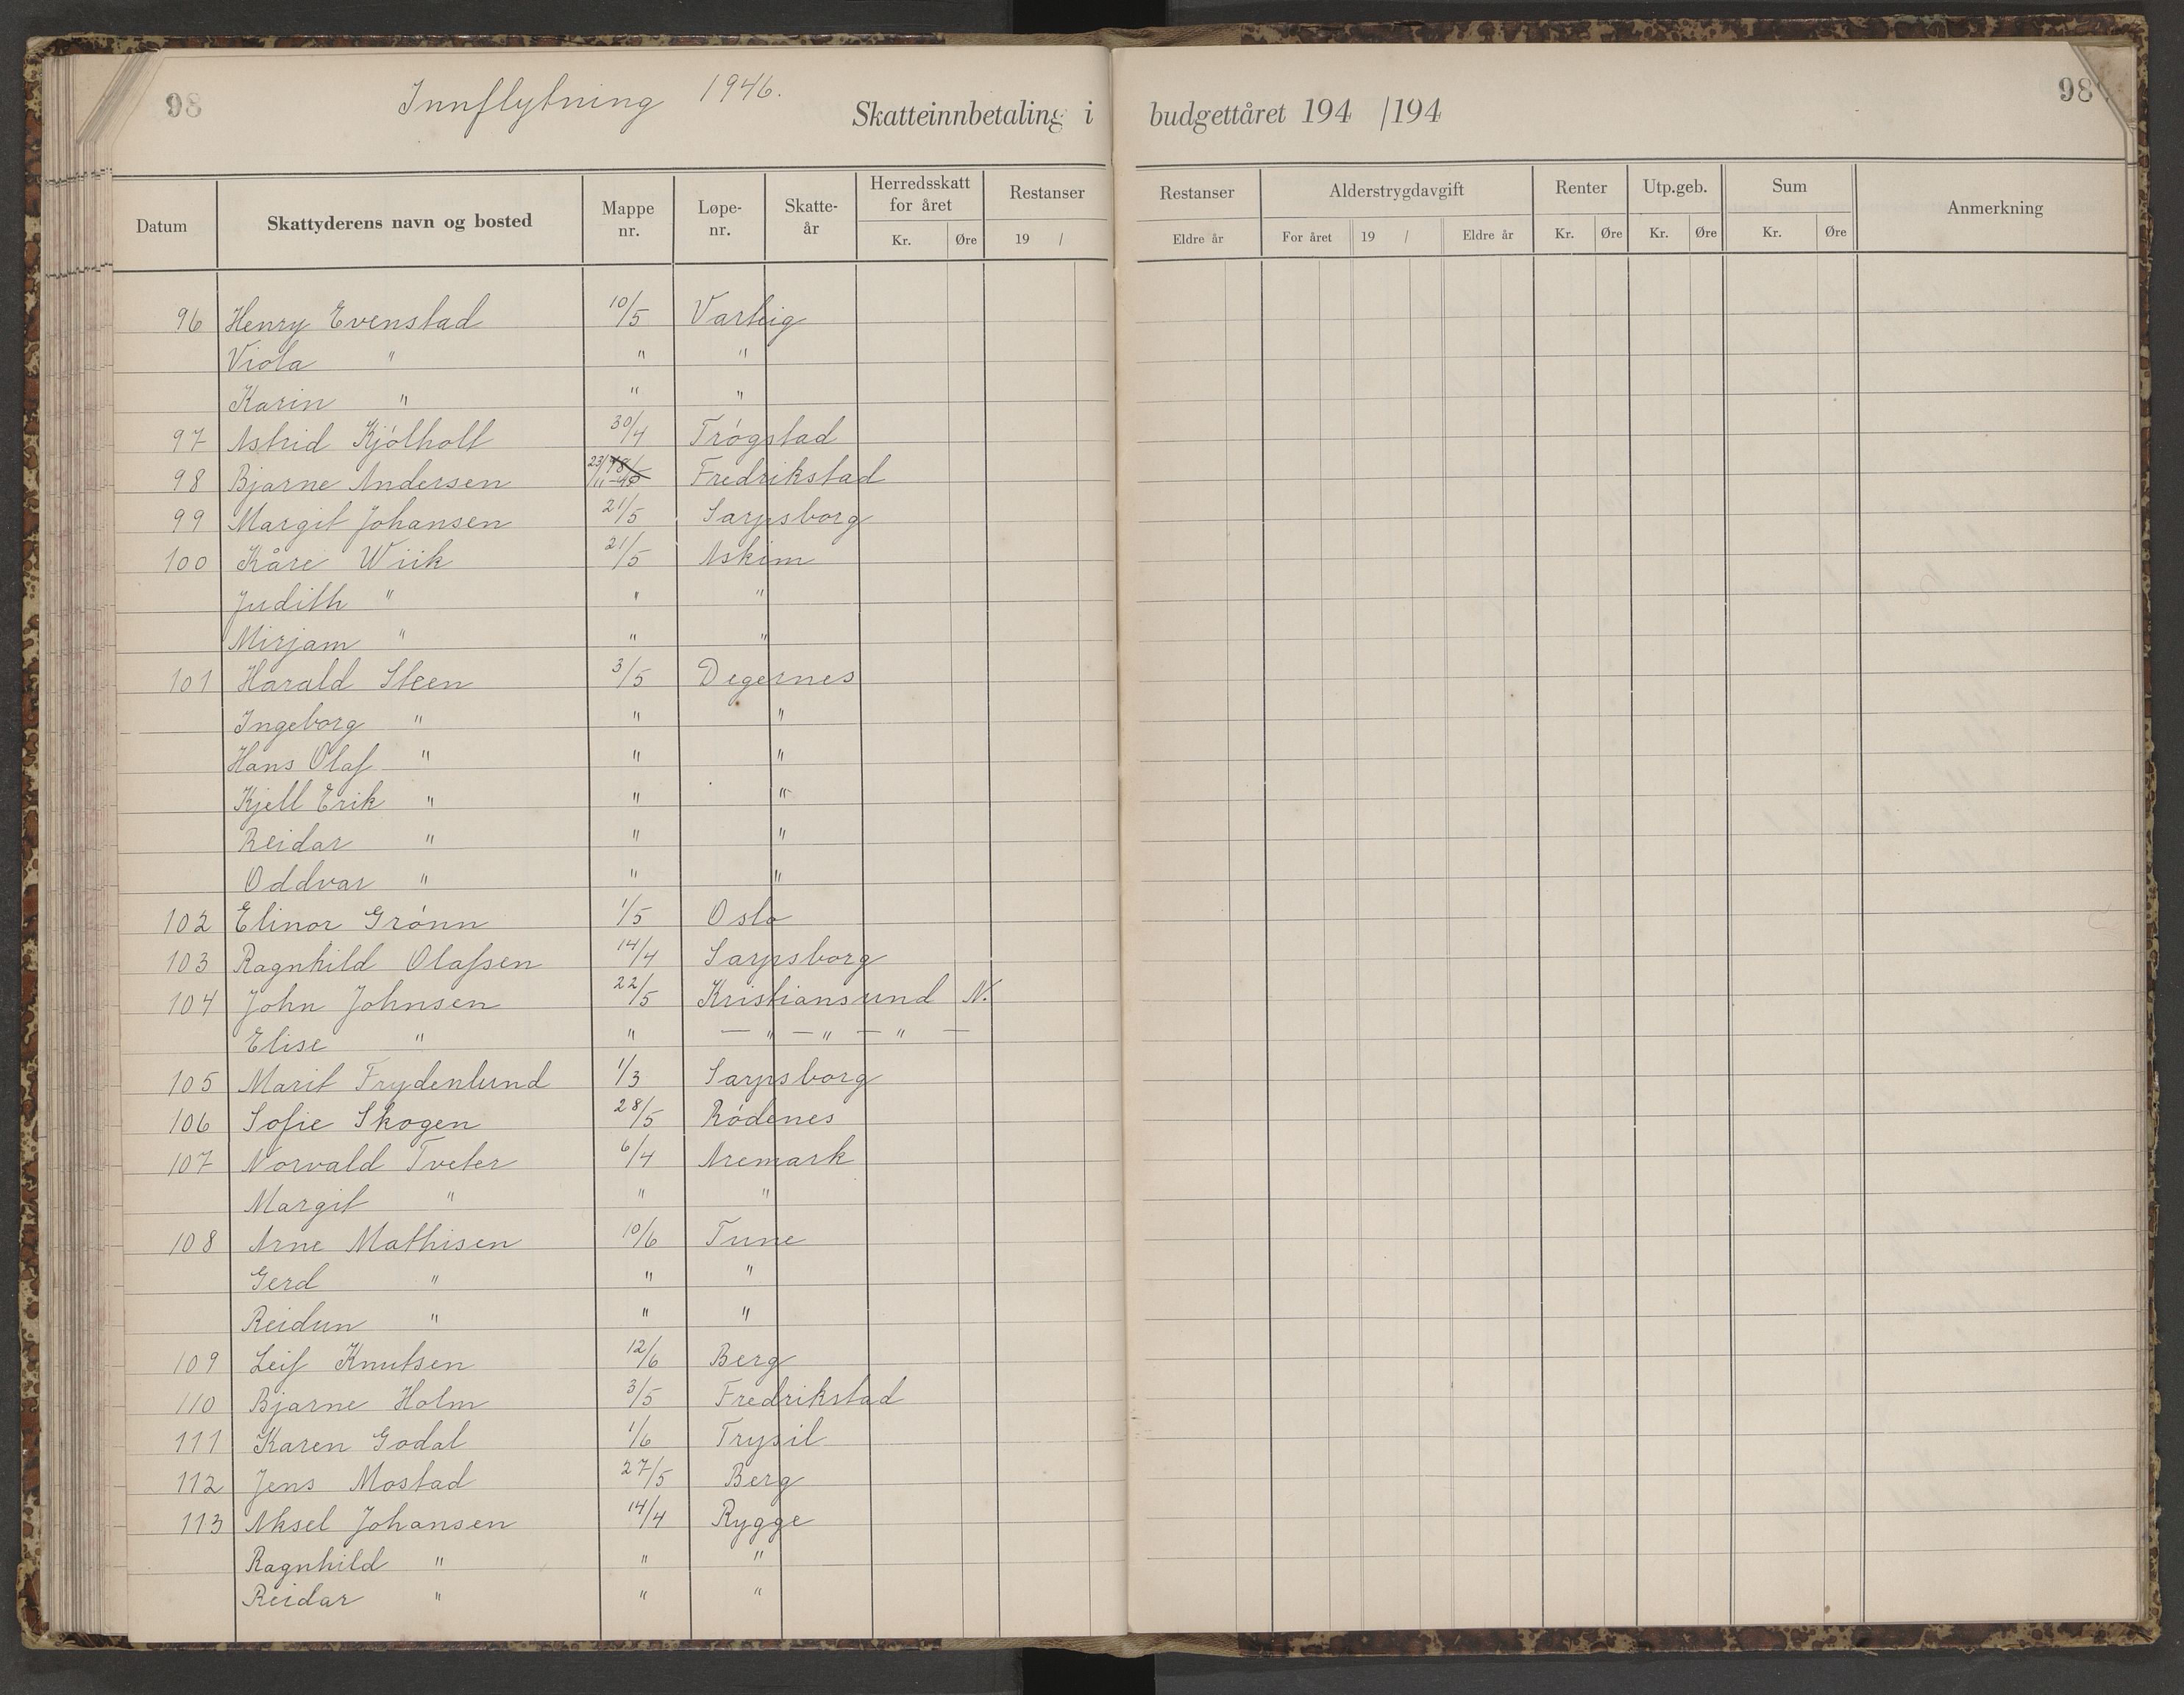 98 Innflytning 1946. 98
Skatteinnbetaling i budgettåret 194 /194
Datum Skattyderens navn og bosted Mappe nr. Løpe-nr. Skatte-år Herredsskatt for året Kr. Øre Restanser 19 / Restanser Eldre år Alderstrygdavgift For året 19 / Eldre år Renter Kr. Øre Utp.geb. Kr. Øre Sum Kr. Øre Anmerkning
96 Henry Evenstad 10/5 Varteig
Viola " " "
Karin " " "
97 Astrid Kjølholt 30/4 Trøgstad
98 Bjarne Andersen 23/11-45 Fredrikstad
99 Margit Johansen 21/5 Sarpsborg
100 Kåre Wiik 21/5 Askim
Judith " " "
Mirjam " " "
101 Harald Steen 3/5 Degernes
Ingeborg " " "
Hans Olaf " " "
Kjell Erik " " "
Reidar " " "
Oddvar " " "
102 Elinor Grønn 1/5 Oslo
103 Ragnhild Olafsen 14/4 Sarpsborg
104 John Johnsen 22/5 Kristiansund N.
Elise " " — " — " — " —
105 Marit Frydenlund 1/3 Sarpsborg
106 Sofie Skogen 28/5 Rødenes
107 Norvald Tveter 6/4 Aremark
Margit " " "
108 Arne Mathisen 10/6 Tune
Gerd " " "
Reidun " " "
109 Leif Knutsen 12/6 Berg
110 Bjarne Holm 3/5 Fredrikstad
111 Karen Godal 1/6 Trysil
112 Jens Mostad 27/5 Berg
113 Aksel Johansen 14/4 Rygge
Ragnhild " " "
Reidar " " "